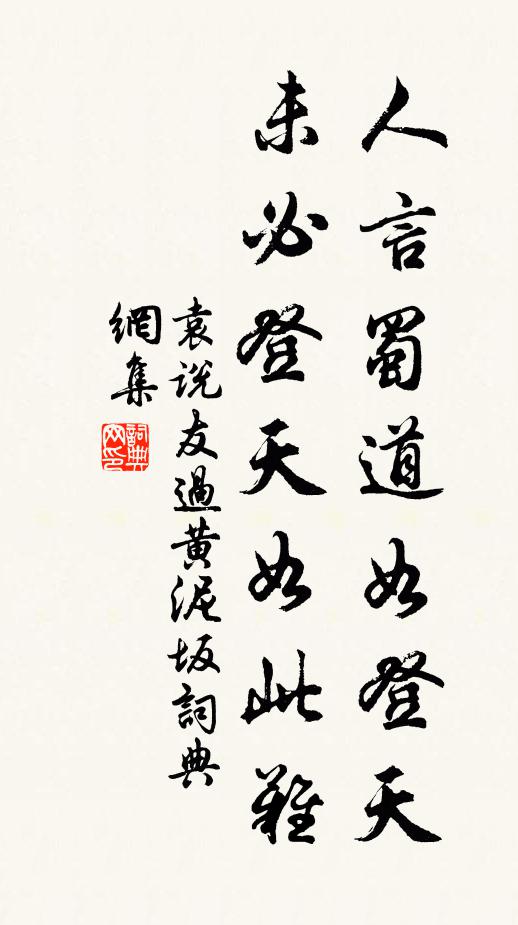 人言蜀道如登天
未必登天如此難
袁説友過黄泥坂詞典
網集
詞典網印